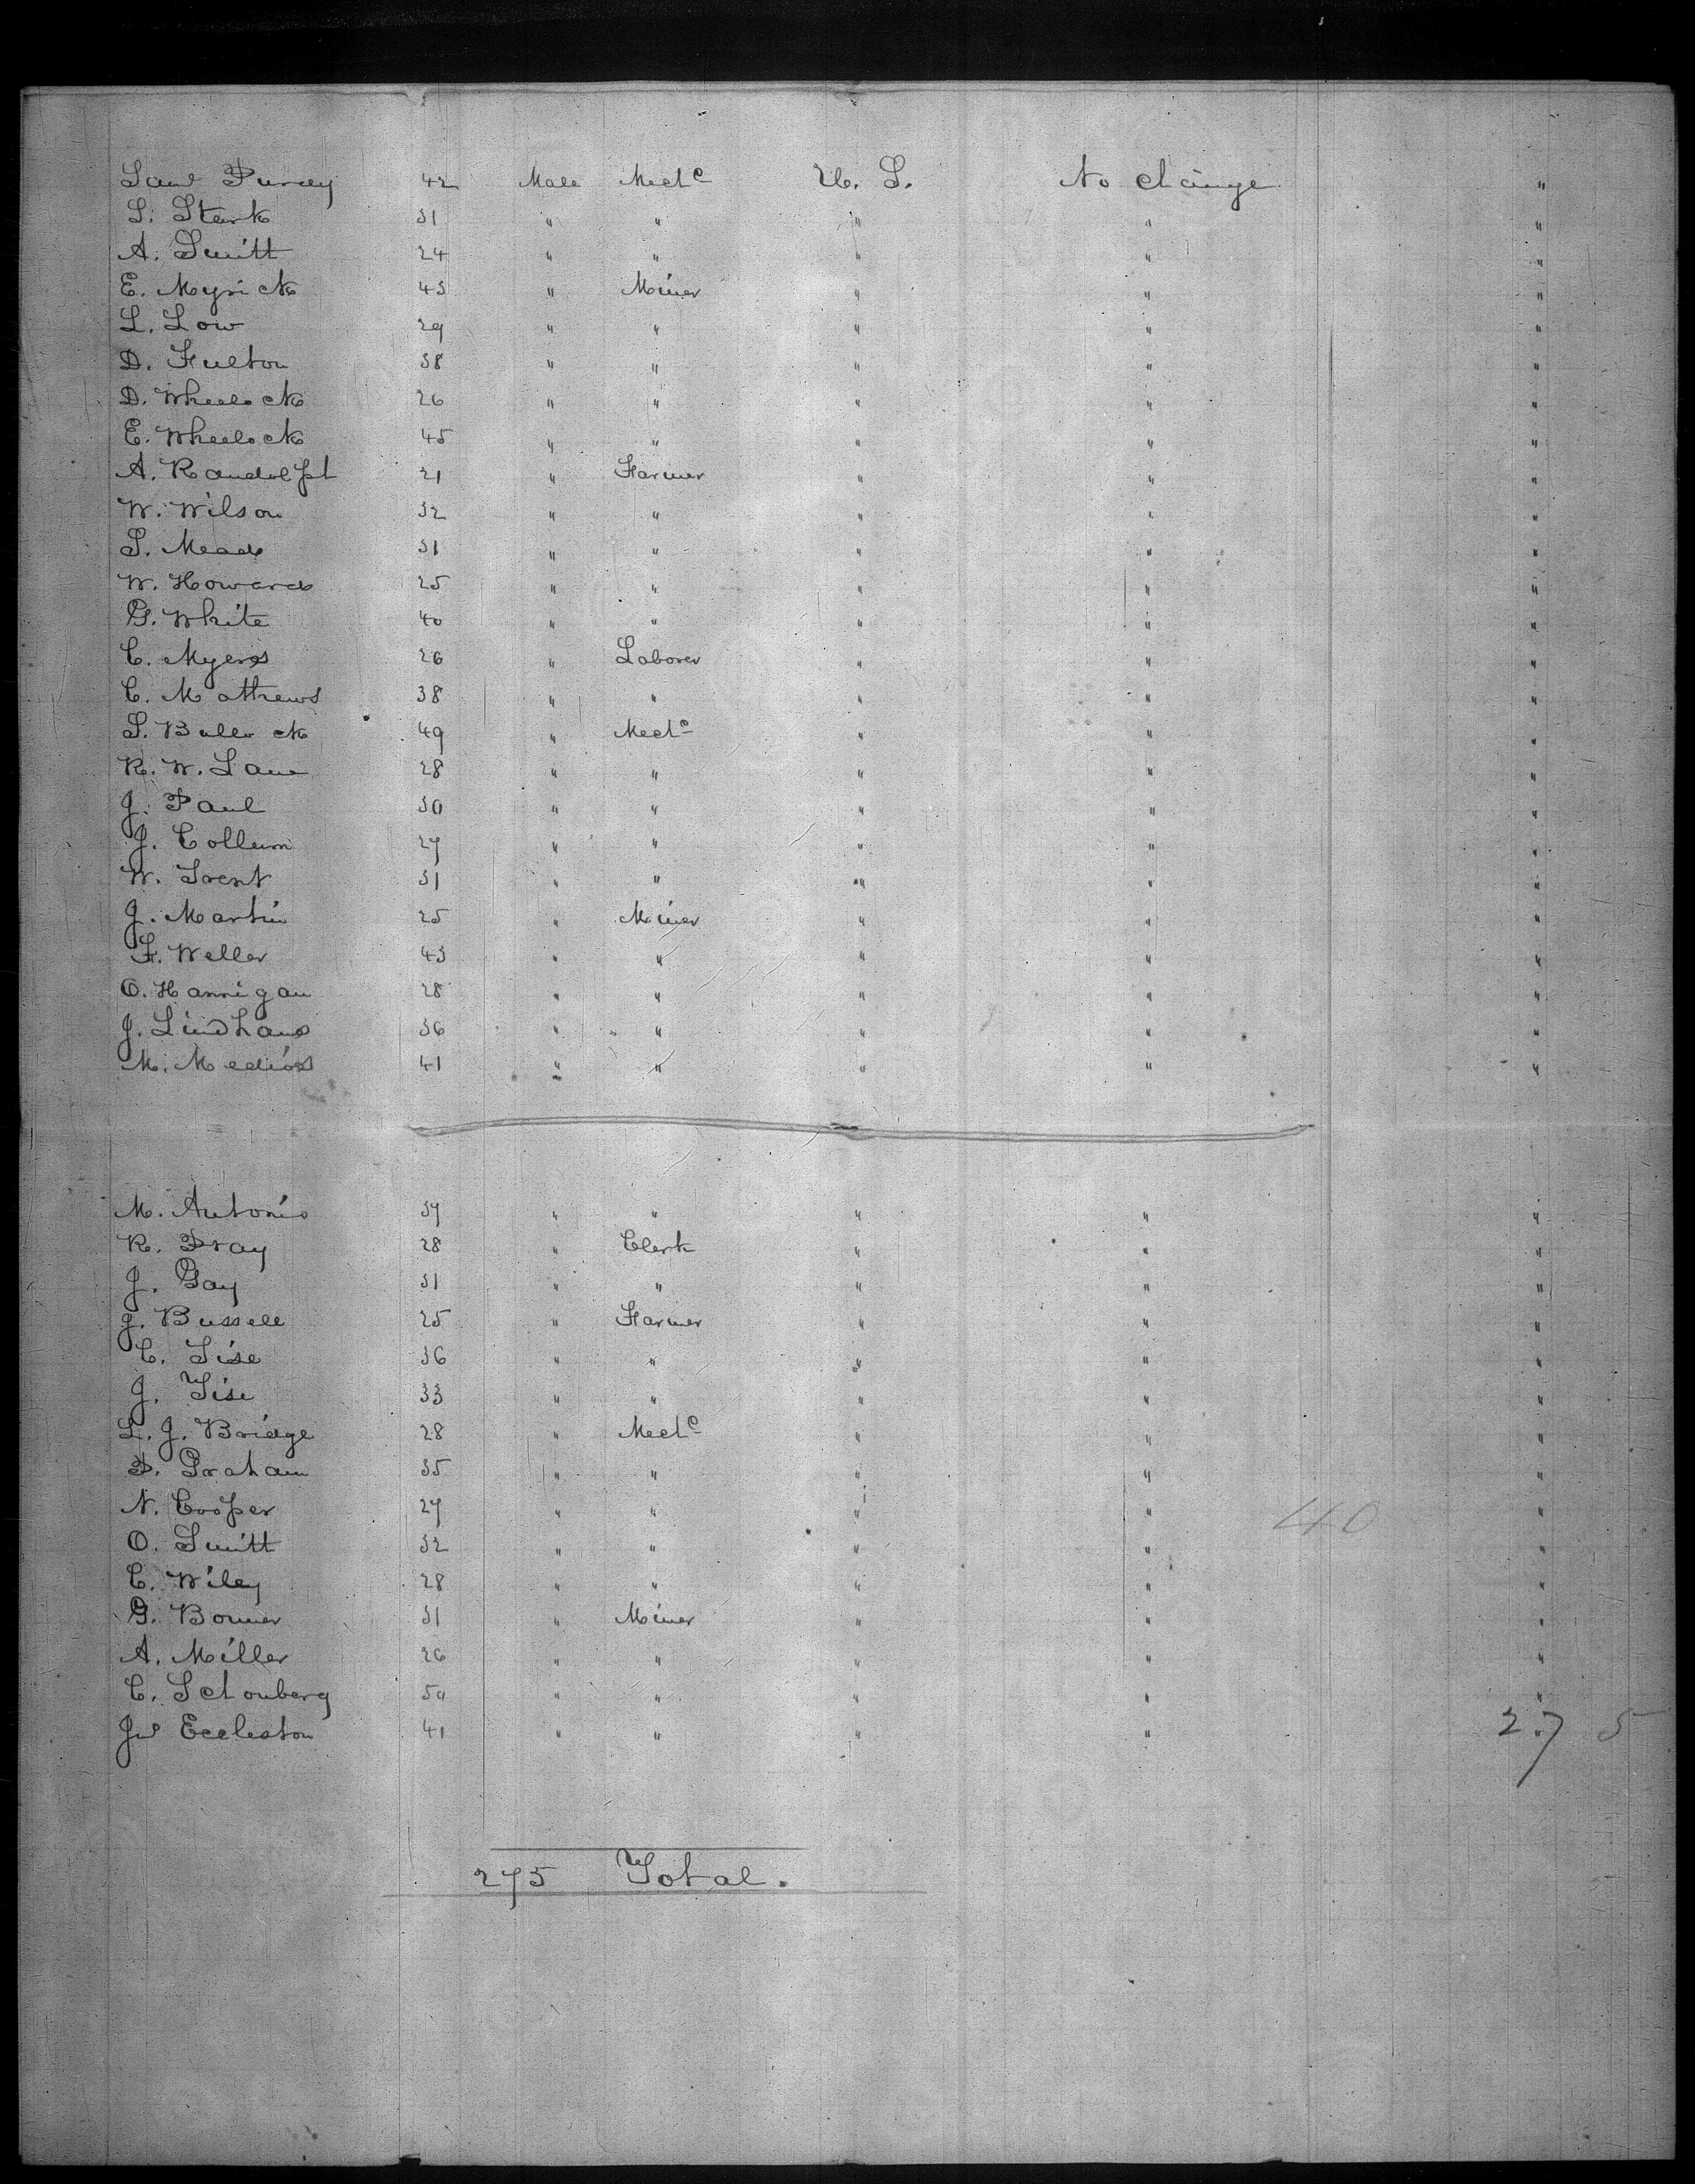 Saml Purdy 42 Male Mech^c U. S. No change "
S. Stark 31 " " " " "
A. Smith 24 " " " " "
E. Myrick 43 " Miner " " "
L. Low 29 " " " " "
D. Fulton 38 " " " " "
D. Wheelock 26 " " " " "
E. Wheelock 45 " " " " "
A. Randolph 21 " Farmer " " "
W. Wilson 32 " " " " "
S. Mead 31 " " " " "
W. Howard 25 " " " " "
G. White 40 " " " " "
C. Myers 26 " Laborer " " "
C. Mathews 38 " " " " "
S. Bullock 49 " Mech^c " " "
R. W. Lane 28 " " " " "
J. Paul 30 " " " " "
J. Collum 27 " " " " "
W. Trent 31 " " " " "
J. Martin 25 " Miner " " "
F. Weller 43 " " " " "
O. Hannigan 28 " " " " "
J. 36 " " " " "
M. 41 " " " " "
M. Antonio 37 " " " " "
R. Pray 28 " Clerk " " "
J. Gay 31 " " " " "
J. Bussell 25 " Farmer " " "
C. Tise 36 " " " " "
J. Tise 33 " " " " "
L. J. Bridge 28 " Mech^c " " "
P. Graham 35 " " " " "
N. Cooper 27 " " " " "
40
O. Smith 32 " " " " "
C. Wiley 28 " " " " "
G. Bonner 31 " Miner " " "
A. Miller 26 " " " " "
C. Schonberg 50 " " " " "
Jno Eccleston 41 " " " " "
275
275 Total.